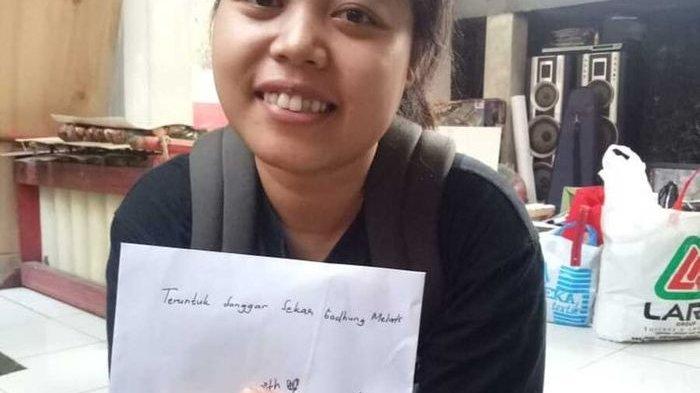 Teruntuk Sanggar Sekar Gadhung Melati
LAR
GROUP
EKA